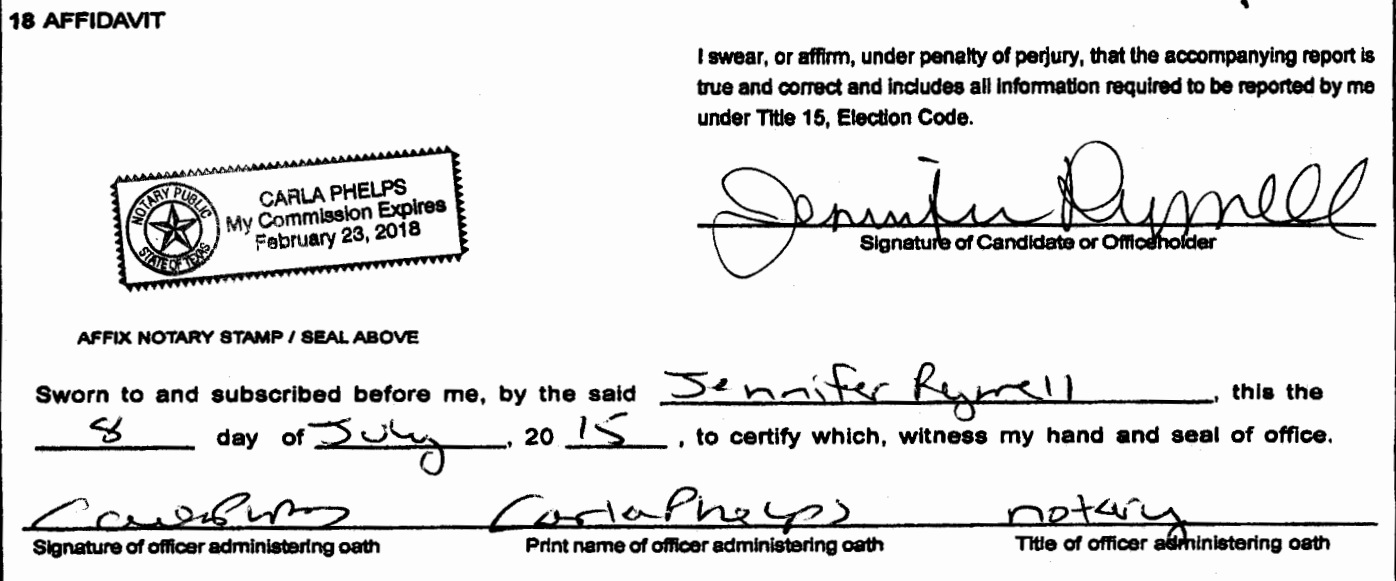 18 AFFIDAVIT
I swear, or affirm, under penalty of perjury, that the accompanying report is
true and correct and includes all information required to be reported by me
under Title 15, Election Code.
NOTARY PUBLIC
STATE OF TEXAS
CARLA PHELPS
My Commission Expires
February 23, 2018
Jennifer Rymell
Signature of Candidate or Officeholder
AFFIX NOTARY STAMP / SEAL ABOVE
Sworn to and subscribed before me, by the said Jennifer Rymell, this the
8 day of July, 20 15, to certify which, witness my hand and seal of office.
Carla Phelps Carla Phelps notary
Signature of officer administering oath Print name of officer administering oath Title of officer administering oath